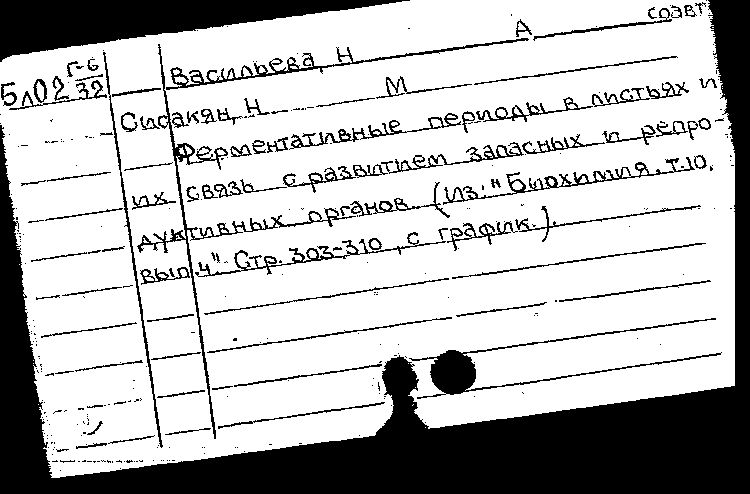 соавт
5л02 Г-6/32 Васильева, Н А
Сисакян, Н М
Ферментативные периоды в листьях и
их связь с развитием запасных и репро-
дуктивных органов. (Из: "Биохимия, т.10,
вып.4". Стр. 303-310, с график.).